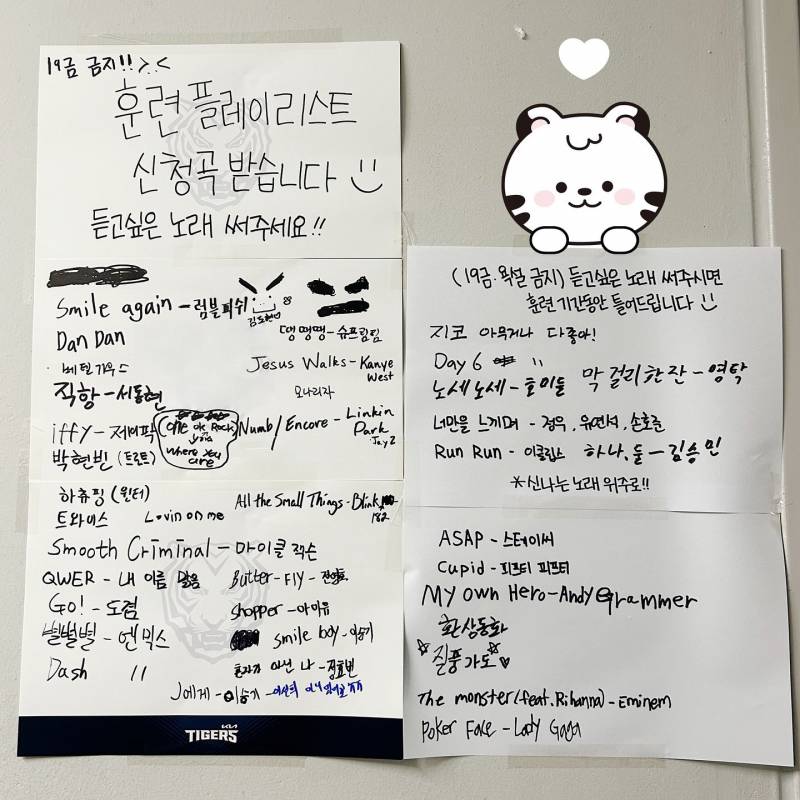 19금 금지!! >.<
훈련 플레이리스트
신청곡 받습니다
듣고싶은 노래 써주세요!!
Smile again - 럼블피쉬
김도현
Dan Dan
댕댕댕 - 슈프림팀
베텔기우스
Jesus Walks - Kanye West
직항 - 서동현
모나리자
iffy - 제이팍
one ok Rock
where you are
Numb/Encore - Linkin Park
Jay Z
박현빈 (트로트)
하츄핑 (윈터)
All the Small Things - Blink 182
트와이스
Lovin on me
Smooth Criminal - 마이클 잭슨
QWER - 내 이름 맑음
Butter-Fly -
Go! - 도겸
shopper - 아이유
별별별 - 엔믹스
smile boy - 이승기
Dash "
혼자가 아닌 나 -
J에게 - 이승기 -
TIGERS
(19금·욕설 금지) 듣고싶은 노래 써주시면
훈련 기간동안 틀어드립니다
지코 아무거나 다좋아!
Day 6 "
노세노세 - 호이들
막걸리 한 잔 - 영탁
너만을 느끼며 - 정우, 유연석, 손호준
Run Run - 이클립스
하나, 둘 - 김승민
*신나는 노래 위주로!!
ASAP - 스테이씨
Cupid - 피프티 피프티
My own Hero - Andy Grammer
환상동화
질풍가도
The monster (feat. Rihanna) - Eminem
Poker Face - Lady Gaga